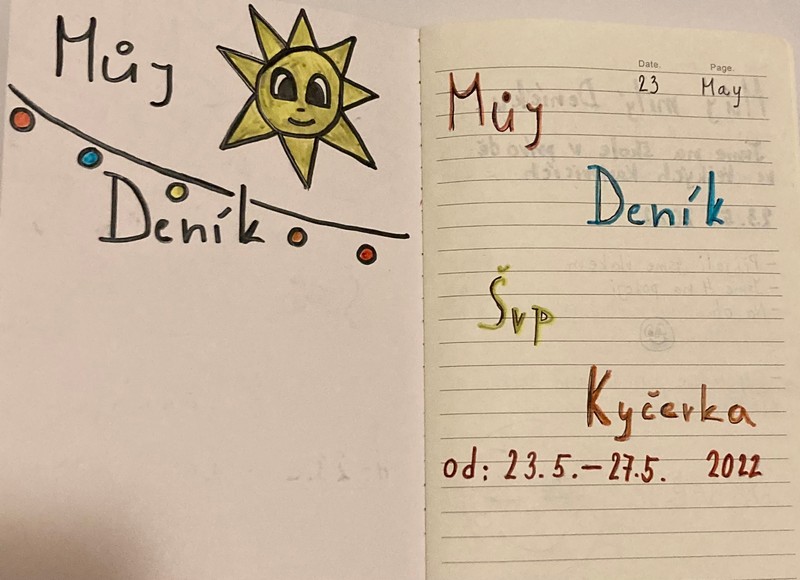 Můj
Deník
Date. Page.
23 May
Můj
Deník
Švp
Kyčerka
od: 23.5.-27.5. 2022